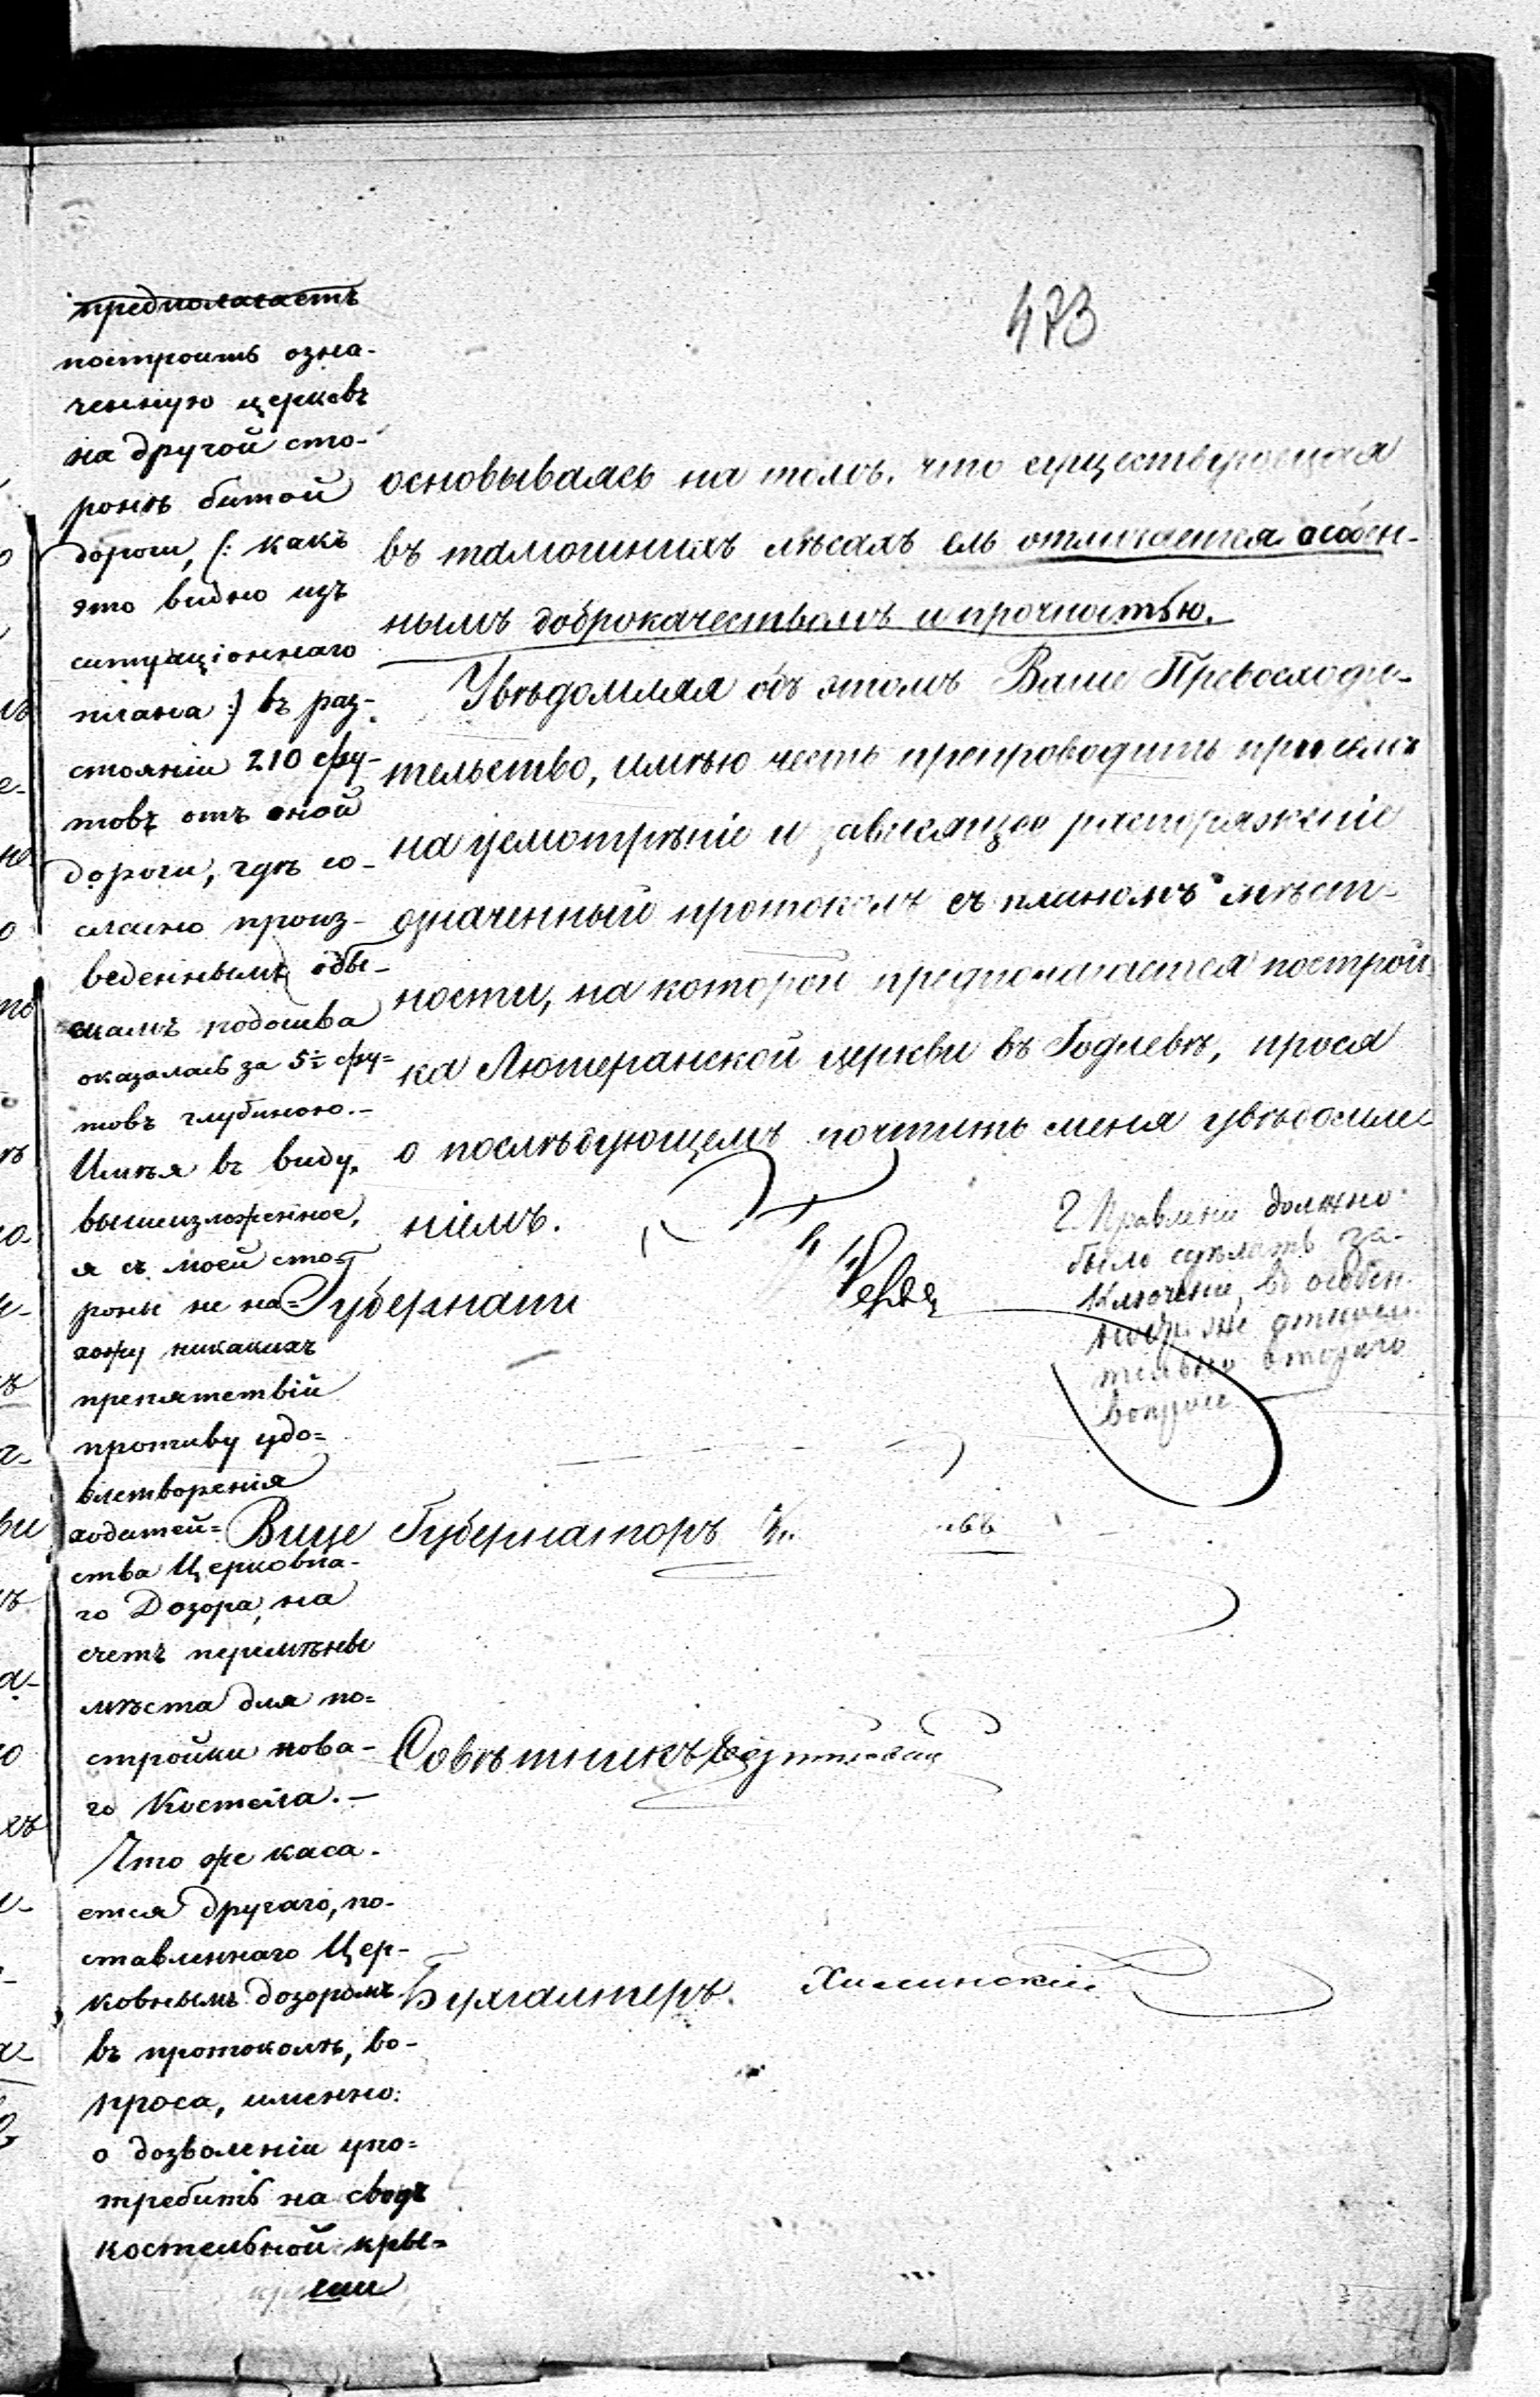 473
предполагаетъ
построить озна-
ченную церковь
на другой сто-
ронѣ битой
дороги, (: какъ
это видно изъ
ситуаціоннаго
плана :) въ раз-
стояніи 210 фу-
товъ отъ оной
дороги, гдѣ со-
гласно произ-
веденнымъ объ-
подошва
оказалась за 5½ фу=
товъ глубиною.-
Имѣя въ виду
вышеизложенное,
я съ моей сто-
роны не на=
хожу никакихъ
препятствій
противу удо=
влетворенія
ходатай=
ства Церковна-
го Дозора, на
счетъ перемѣны
мѣста для по=
стройки нова-
го Костела.-
Что же каса-
ется другаго, по-
ставленнаго Цер-
ковнымъ дозоромъ
въ протоколѣ, во-
проса, именно:
о дозволеніи упо=
требить на сводъ
костельной кры=
основываясь на томъ, что существующая
въ тамошнихъ лѣсахъ ель отличается особен-
нымъ доброкачествомъ и прочностью.
Увѣдомляя объ этомъ Ваше Превосходи-
тельство, имѣю честь препроводить при семъ
на усмотрѣніе и зависящее распоряженіе
означенный протоколъ съ планомъ мѣст-
ности, на которой предполагается построй-
ка Лютеранской церкви въ Годлевѣ, прося
о послѣдующемъ почтить меня увѣдомле-
ніемъ.
Г. Правленіе должно
было сдѣлать за-
ключеніе, въ особен-
же относи-
тельно втораго
вопроса
Губернат
Вице Губернаторъ
Совѣтникъ
Бухгалтеръ. Хилинскій